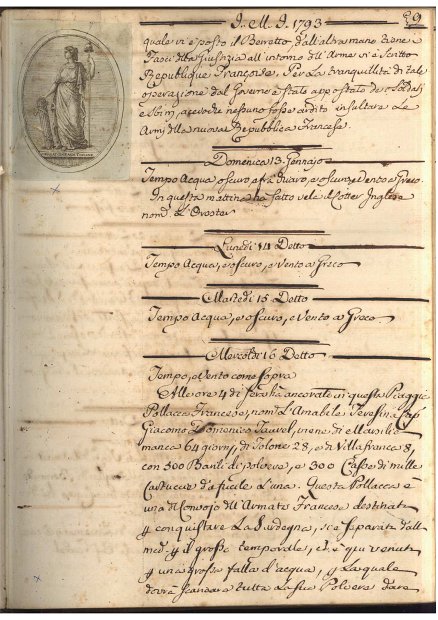 J. M. J. 1793
9
quale vi è posto il Berretto, dall'altra mano tiene i
Fasci della Giustizia all'intorno dell'Arme vi è scritto
Republique Françoise. Per la tranquillità di tale
operazione dal Governo è stato appostato de Soldati
e Sbirri, acciochè nessuno fosse ardito insultare le
Armi della nuova Repubblica Francese.
Domenica 13. Gennajo
Tempo Acqua, oscuro, e Vento a Greco.
In questa mattina ha fatto vela il Cotter Inglese
nom.
Lunedì 14 Detto
Tempo Acqua, e oscuro, e Vento a Greco
Martedì 15 Detto
Tempo Acqua, e oscuro, e Vento a Greco
Mercoldì 16 Detto
Tempo, e Vento come sopra
Alle ore 4 di sera hà ancorato in questa Piaggia
Pollacca Francese, nom. L'Amabile Teresina Cap.
Giacomo Domenico Tauvel, viene di Marsilia
manca 64 giorni, di Tolone 28, e di Villafranca 8,
con 500 Barili di polvere, e 300 Casse di mille
Cartucce da fucile l'una. Questa Pollacca è
una di Convojo dell'Armata Francese destinata
p conquistare la Sardegna, si è separata dall
med. p il grosso temporale, ed è qui venuta
p una grossa falla d'acqua, p la quale
dovrà scaricare tutta la sua Polvere